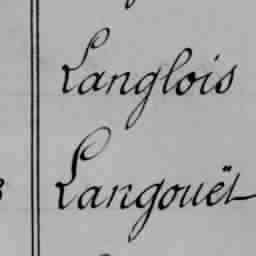 Langlois
Langouët